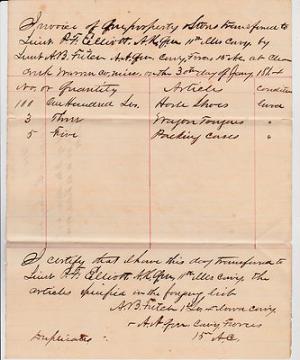 Invoice of Qm property & Stores transferred to
Lieut P.F. Elliott A.A.Q.M. 11th Ills Cavy. by
Lieut A.B. Fitch A.A.Qm Cavy. Forces 15th A.C. at
Warren Co. Miss. on the 30th day of 1864
No. or Quantity Article Condition
100 One Hundred Lbs. Horse Shoes Good
3 Three Wagon Tongues "
5 Five Packing Cases "
I certify that I have this day transferred to
Lieut P.F. Elliott A.A.Qm, 11th Ills Cavy. the
articles specified in the forgoing list
A.B. Fitch 1st Lt 4th Iowa Cavy.
& A.A.Qm Cavy Forces
Duplicates 15th A.C.